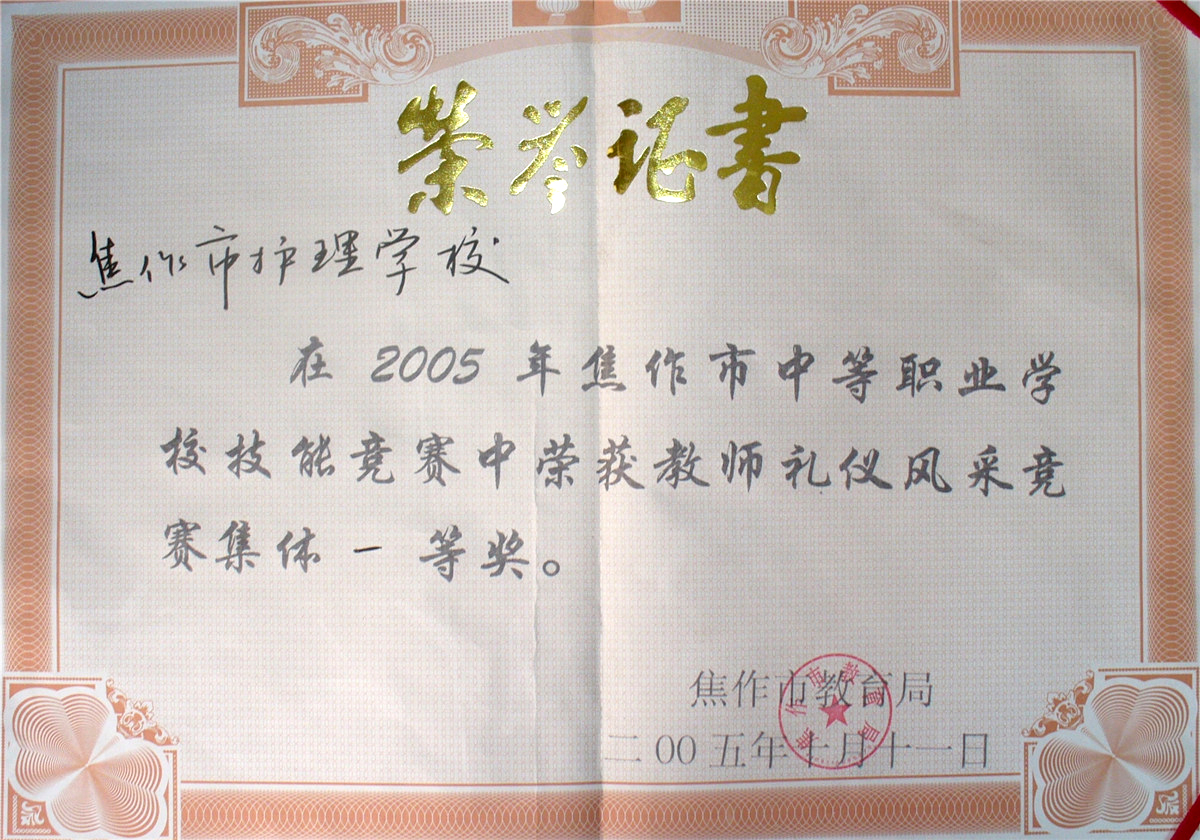 荣誉证书
焦作市护理学校
在 2005 年焦作市中等职业学
校技能竞赛中荣获教师礼仪风采竞
赛集体一等奖。
焦作市教育局
二 00 五年十月十一日
焦作市教育局